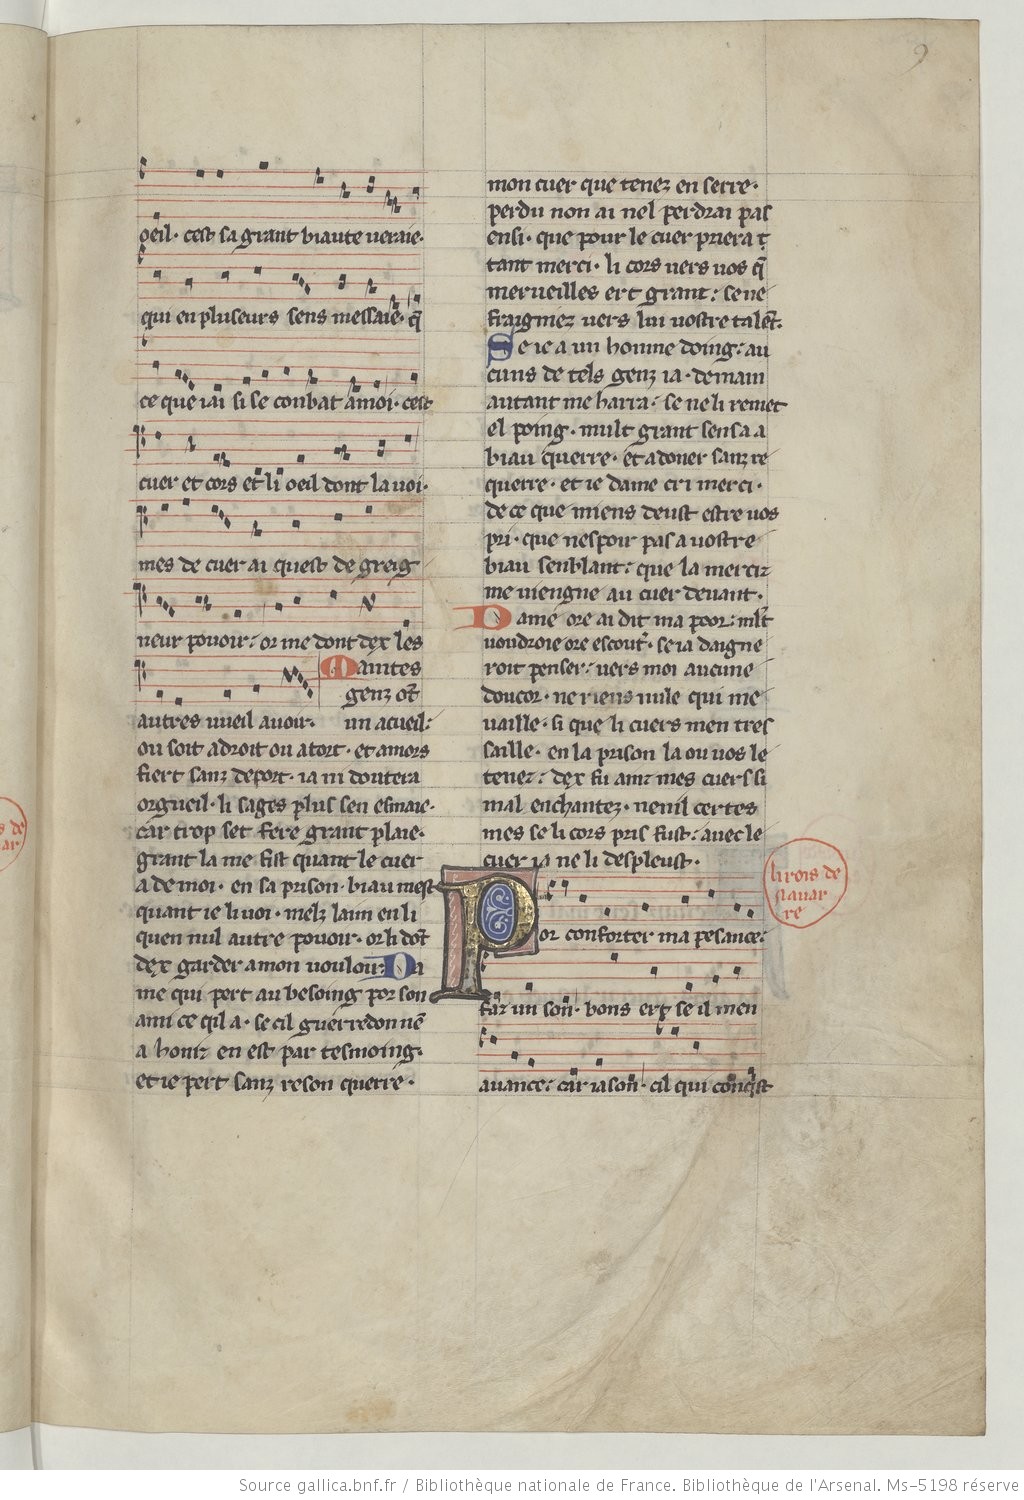 9
oeil· cest sa grant biaute ueraie·
qui en pluseurs sens messaie· q̃
ce que iai si se conbat a moi· cest
cuer et cors et li oeil dont la uoi·
mes de cuer ai quest de greig
neur pouoir: or me dont dex les
Maintes
genz ōt
autres uueil auoir· un acueil:
ou soit adroit ou a tort· et amors
fiert sanz deport· ia ni doutera
orgueil· li sages plus sen esmaie·
car trop set fere grant plaie·
grant la me fist quant le cuer
a de moi· en sa prison· biau mest
quant ie li uoi· melz laim en li
quen nul autre pouoir· or li dōt
dex garder a mon uouloir: Da
me qui pert au besoing por son
ami ce qil a· se cil guerredon nē
a honir en est par tesmoing·
et ie pert sanz reson querre·
mon cuer que tenez en serre·
perdu non ai nel perdrai pas
ensi· que pour le cuer priera
tant merci· li cors uers uos q̃
merueilles ert grant: se ne
fraigniez uers lui uostre talēt·
Se ie a un homme doing: au
cuns de tels genz ia· demain
autant me harra· se ne li remet
el poing· mult grant sens a a
biau querre· et a doner sanz re
querre· et ie dame cri merci·
de ce que miens deust estre uos
pri· que nespoir pas a uostre
biau senblant: que la merciz
me uiengne au cuer deuant·
Dame ore ai dit ma poor: mlt̃
uoudroie ore escout̃· se ia daigne
roit penser· uers moi aucune
doucor· ne riens nule qui me
uaille· si que li cuers men tres
saille· en la prison la ou uos le
tenez: dex fu ainz mes cuers si
mal enchantez· nenil certes
mes se li cors pris fust: auec le
cuer ia ne li despleust·
li rois de
nauar
re
Por conforter ma pesance:
faz un son· bons ert se il men
auance: car iason· cil qui conqist
Source gallica.bnf.fr / Bibliothèque nationale de France. Bibliothèque de l'Arsenal. Ms-5198 réserve